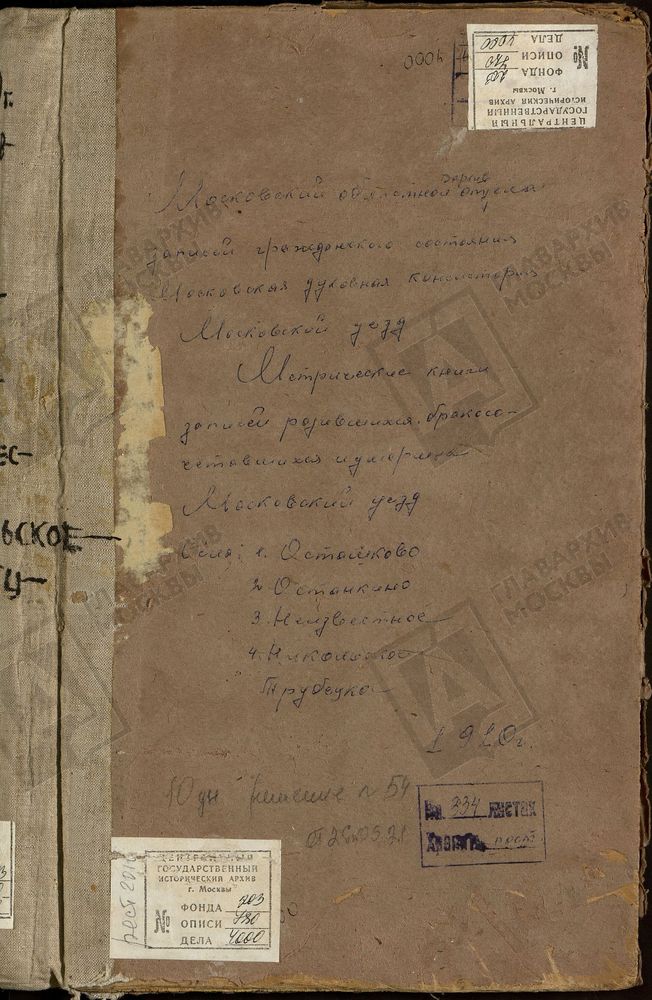 4000
ЦЕНТРАЛЬНЫЙ
ГОСУДАРСТВЕННЫЙ
ИСТОРИЧЕСКИЙ АРХИВ
г. Москвы
№ ФОНДА 203
ОПИСИ 780
ДЕЛА 4000
Московский областной архив отдела
записей гражданского состояния
Московская духовная консистория
Московский уезд
Метрические книги
записей родившихся, бракосо-
четавшихся и умерших
Московский уезд
Села: 1. Осташково
2. Останкино
3. Неизвестное
4. Никольское
Трубецкое
1920г.
решение № 54
На 334 листах
Хранить пост
ЕС-
ЬСКОЕ-
рест 20
ЦЕНТРАЛЬНЫЙ
ГОСУДАРСТВЕННЫЙ
ИСТОРИЧЕСКИЙ АРХИВ
г. Москвы
№ ФОНДА 203
ОПИСИ 780
ДЕЛА 4000
ГЛАВАРХИВ
МОСКВЫ
ГЛАВАРХИВ
МОСКВЫ
ГЛАВАРХИВ
МОСКВЫ
ГЛАВАРХИВ
МОСКВЫ